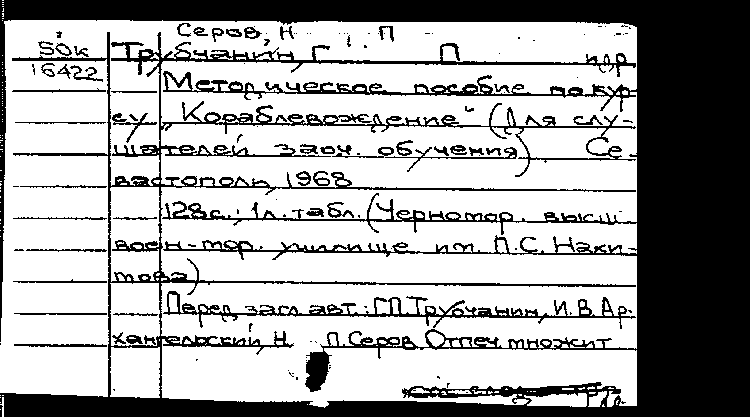 Серов, Н П
50к Трубчанин, Г П и др
16422
Методическое пособие по кур-
су „Кораблевождение“ (Для слу-
шателей заоч. обучения) Се-
вастополь, 1968
128с.; 1л. табл. (Черномор. высш
воен-мор. училище им. П.С. Нахи-
мова)
Перед загл авт.: Г.П. Трубчанин, И.В. Ар-
хангельский, Н П. Серов. Отпеч множит